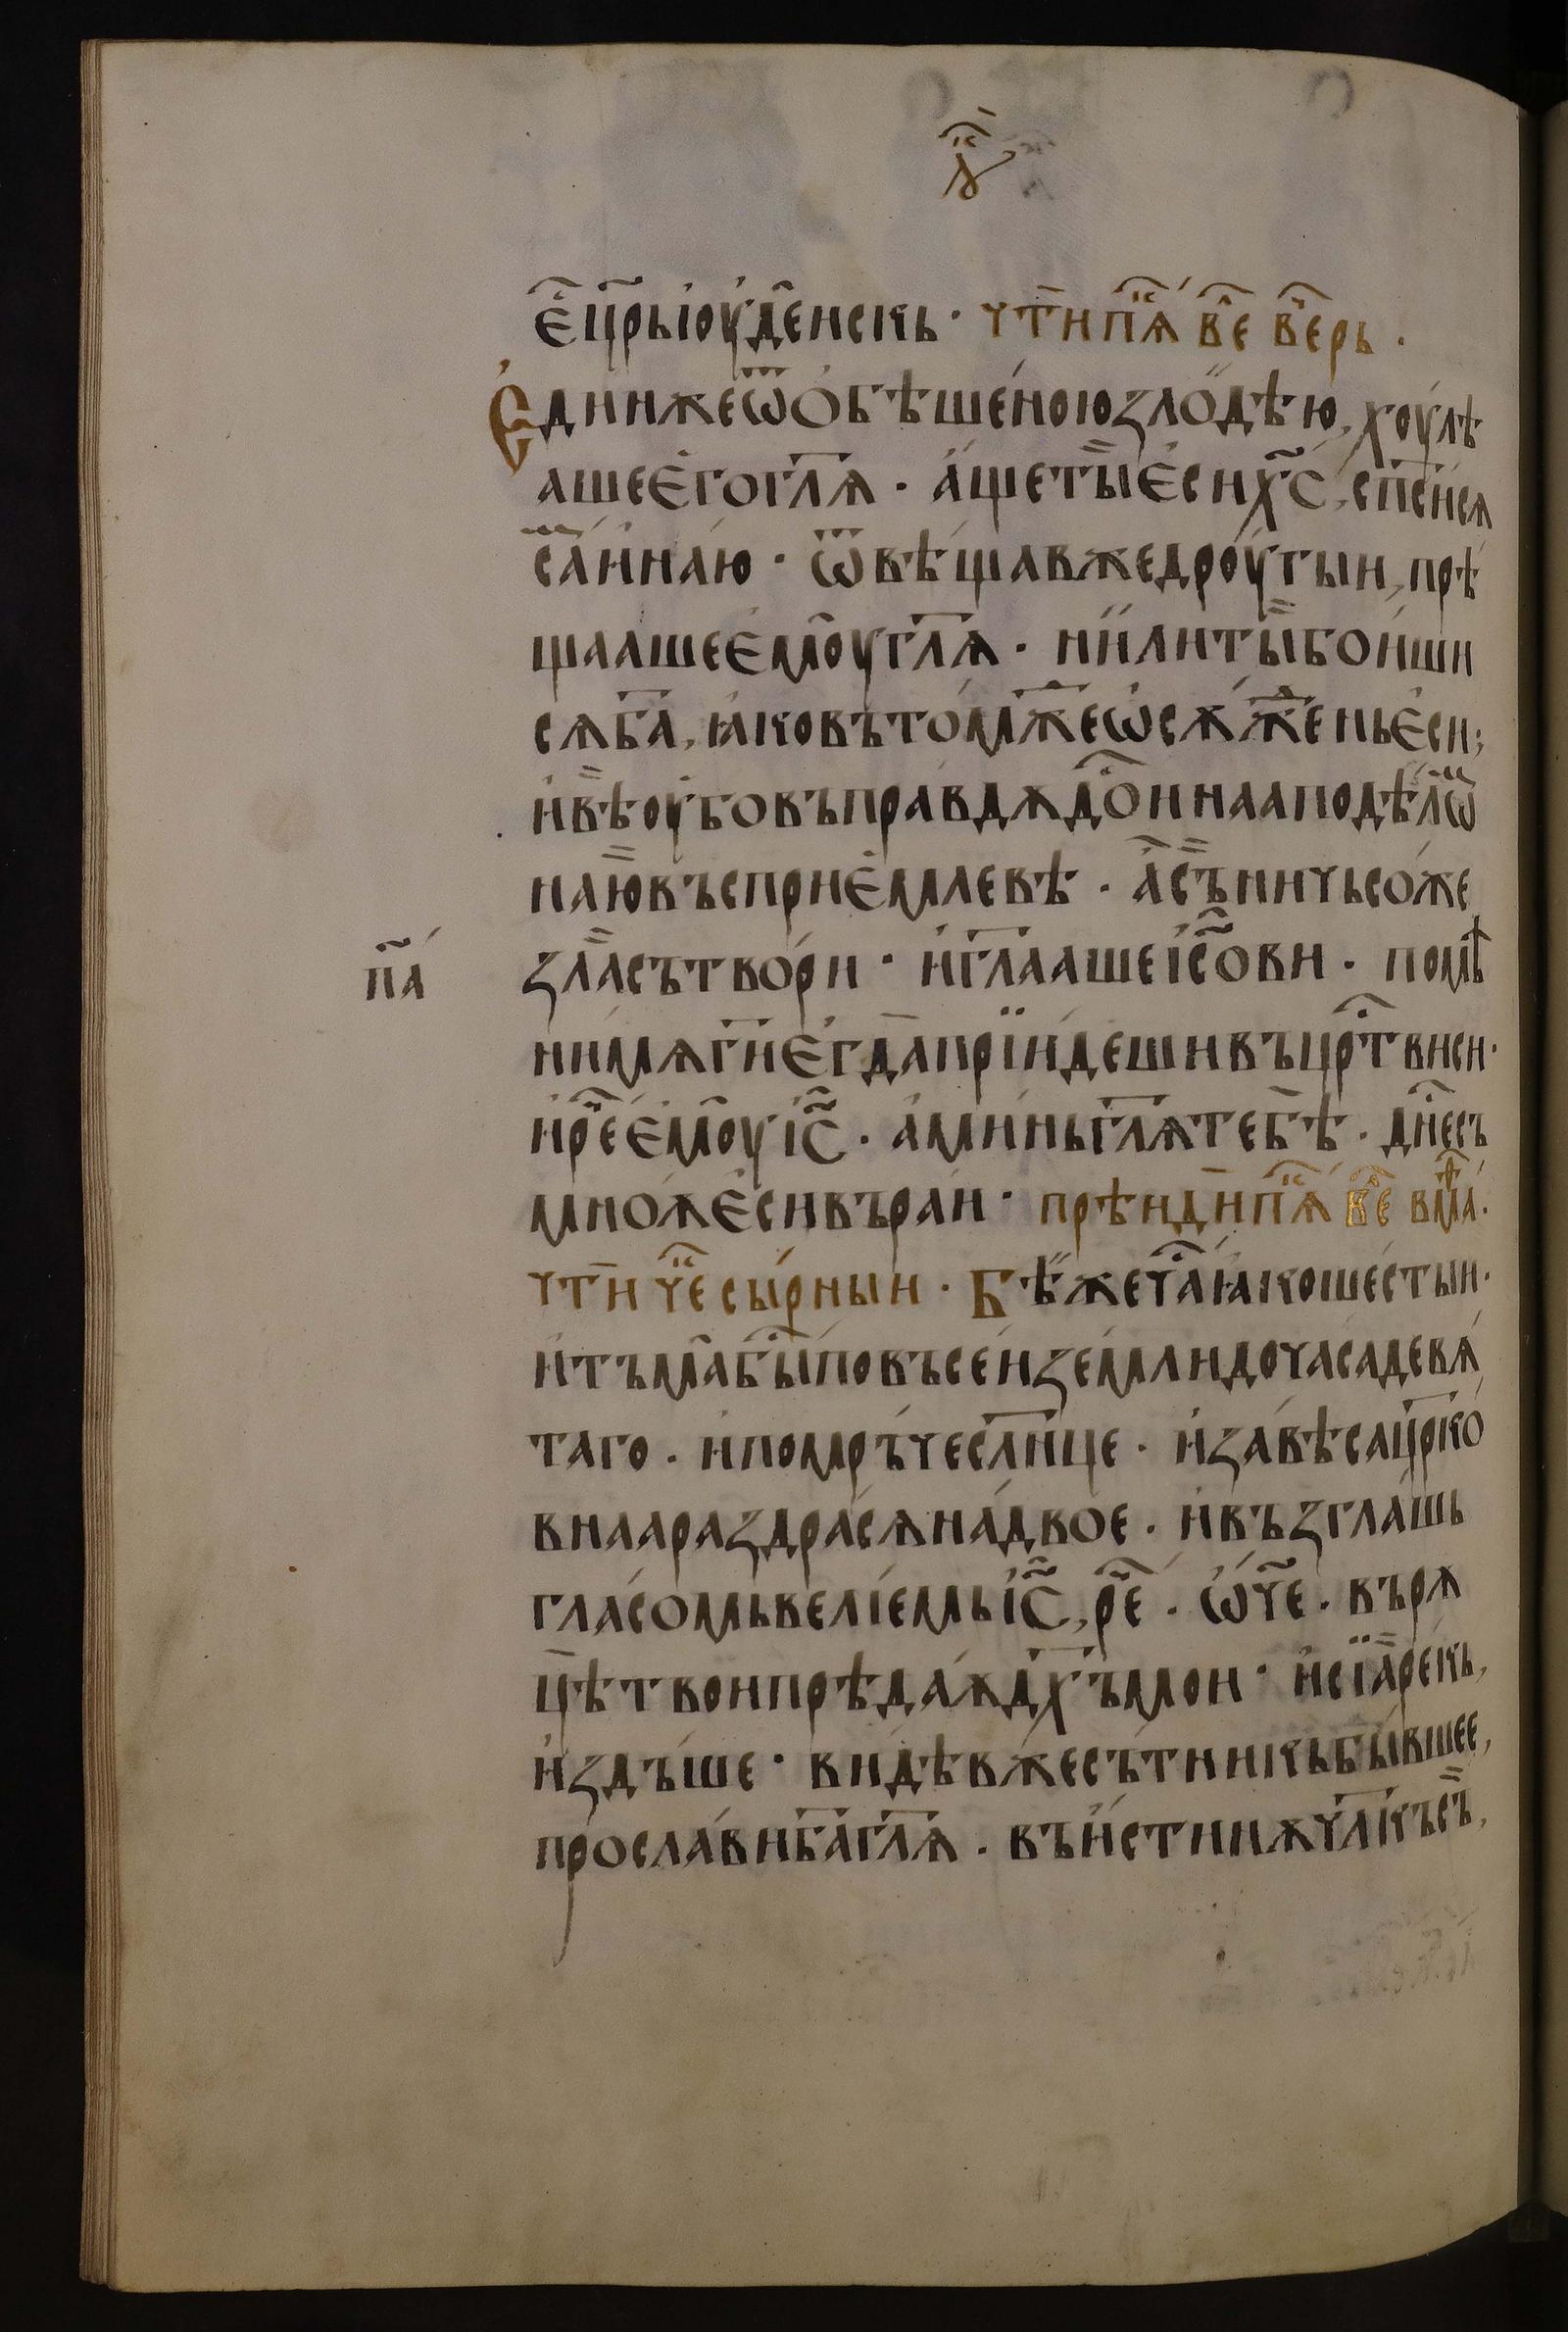 е҆́цр҃ьі҆оу҆де́нскь · чт҃ипѧ́ в҆е ве́рь ·
Є҆дннжеѿо́бѣше́ноюзло́дѣю, хоу́лѣ
ашеє҆гогл҃ѧ · а҆́щеты̀є҆снх҃с, сп҃си́сѧ
са́и҆на́ю · ѿвѣщавжедроу́гын, прѣ
щаашеє҆моугл҃ѧ · нн́лнты̀бон́шн
сѧб҃а, ꙗ҆ковъто́мж҆еѡ҆сѫ́ж҆еньє҆сн;
н҆вѣ̀оу҆бовъпра́вдѫдо҆ннааподѣ́лѡⷨ
наю̀въспрне́млевѣ · а҆съ̀ннчьсо́же
пⷶ҇
зла̀сътво́рн · н҆гл҃аашеі҆с҃овн · помѣ́
ннмѧг҃н́є҆гда̀прїн́дешнвъцр҃твнсн·
н҆ре҆є҆моуі҆с҃ · а҆мн́ньгл҃ѧтебѣ̀ · дн҃есъ
мно́ѫє҆снвъран́ · прѣндн̀пѧ́ в҆е вма́·
чтн̀ че҆сы́рнын · Бѣ́жеча҆ꙗ҆коше́стын·
н҆тъма̀бы҆повъсе́нземлндоча́садевѧ́
таго · н҆помръ́чесл҃нце · н҆заве́сацр҃ко́
внаараздра́сѧна́двое · н҆възгла́шь
гла́сомьвелі́емьі҆с҃, ре҆ · ѡ҆́ч҃е · върѧ
цѣ̀твонпрѣда́ѫдх҃ъмон · н҆сїа̀ре́кь,
н҆здъ́ше · вн́дѣвжесъ́тннкьбы́вшее,
просла́внб҃агл҃ѧ · вън҆́стннѫчл҃късъ̀,